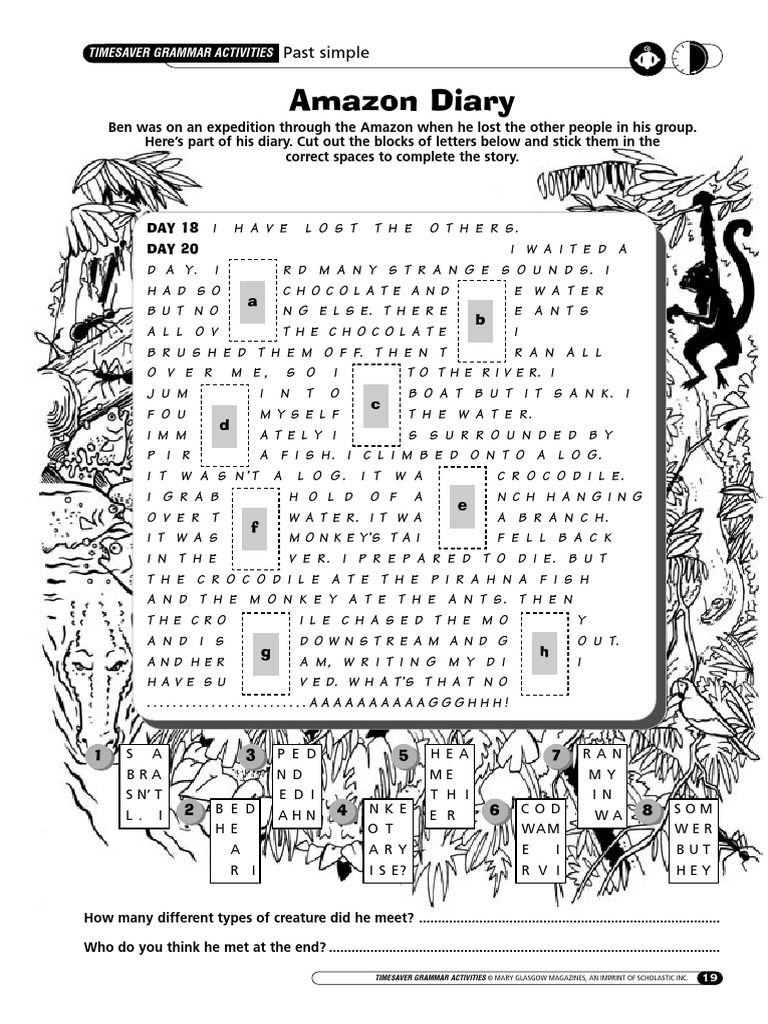 TIMESAVER GRAMMAR ACTIVITIES Past simple
Amazon Diary
Ben was on an expedition through the Amazon when he lost the other people in his group.
Here's part of his diary. Cut out the blocks of letters below and stick them in the
correct spaces to complete the story.
DAY 18 I HAVE LOST THE OTHERS.
DAY 20 I WAITED A
DAY. I RD MANY STRANGE SOUNDS. I
HAD SO CHOCOLATE AND E WATER
a
BUT NO NG ELSE. THERE E ANTS
b
ALL OV THE CHOCOLATE I
BRUSHED THEM OFF. THEN T RAN ALL
OVER ME, SO I TO THE RIVER. I
JUM INTO BOAT BUT IT SANK. I
c
FOU MYSELF THE WATER.
d
IMM ATELY I S SURROUNDED BY
PIR A FISH. I CLIMBED ONTO A LOG.
IT WASN'T A LOG. IT WA CROCODILE.
I GRAB HOLD OF A NCH HANGING
e
OVER T WATER. IT WA A BRANCH.
f
IT WAS MONKEY'S TAI FELL BACK
IN THE VER. I PREPARED TO DIE. BUT
THE CROCODILE ATE THE PIRAHNA FISH
AND THE MONKEY ATE THE ANTS. THEN
THE CRO ILE CHASED THE MO Y
AND I S DOWNSTREAM AND G OUT.
g h
AND HER AM, WRITING MY DI I
HAVE SU VED. WHAT'S THAT NO
.......................AAAAAAAAAAGGGHHH!
1 S A 3 PED 5 HEA 7 RAN
BRA ND ME MY
SN'T EDI THI IN
L. I AHN ER WA
2 BED 4 NKE 6 COD 8 SOM
HE OT WAM WER
A ARY E I BUT
R I ISE? RVI HEY
How many different types of creature did he meet? ................................................................................
Who do you think he met at the end? ................................................................................................
TIMESAVER GRAMMAR ACTIVITIES © MARY GLASGOW MAGAZINES, AN IMPRINT OF SCHOLASTIC INC. 19